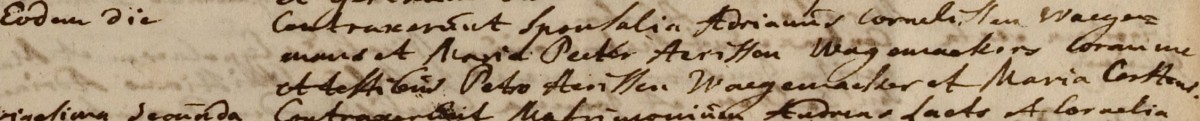 Eodem die Contraxerunt Sponsalia Adrianus Cornelissen Waegen=
mans et Maria Peeter Aerissen Wagemaekers Coram me
et testibus Petro Aerissen Waegemaeker et Maria
vigesima secunda Contraxerunt Matrimonium Andreas Saets et Cornelia